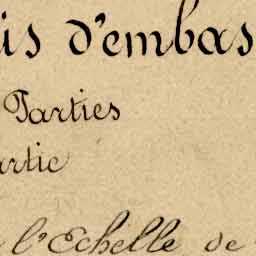 is d'embas
Parties
artie
l'Echelle de